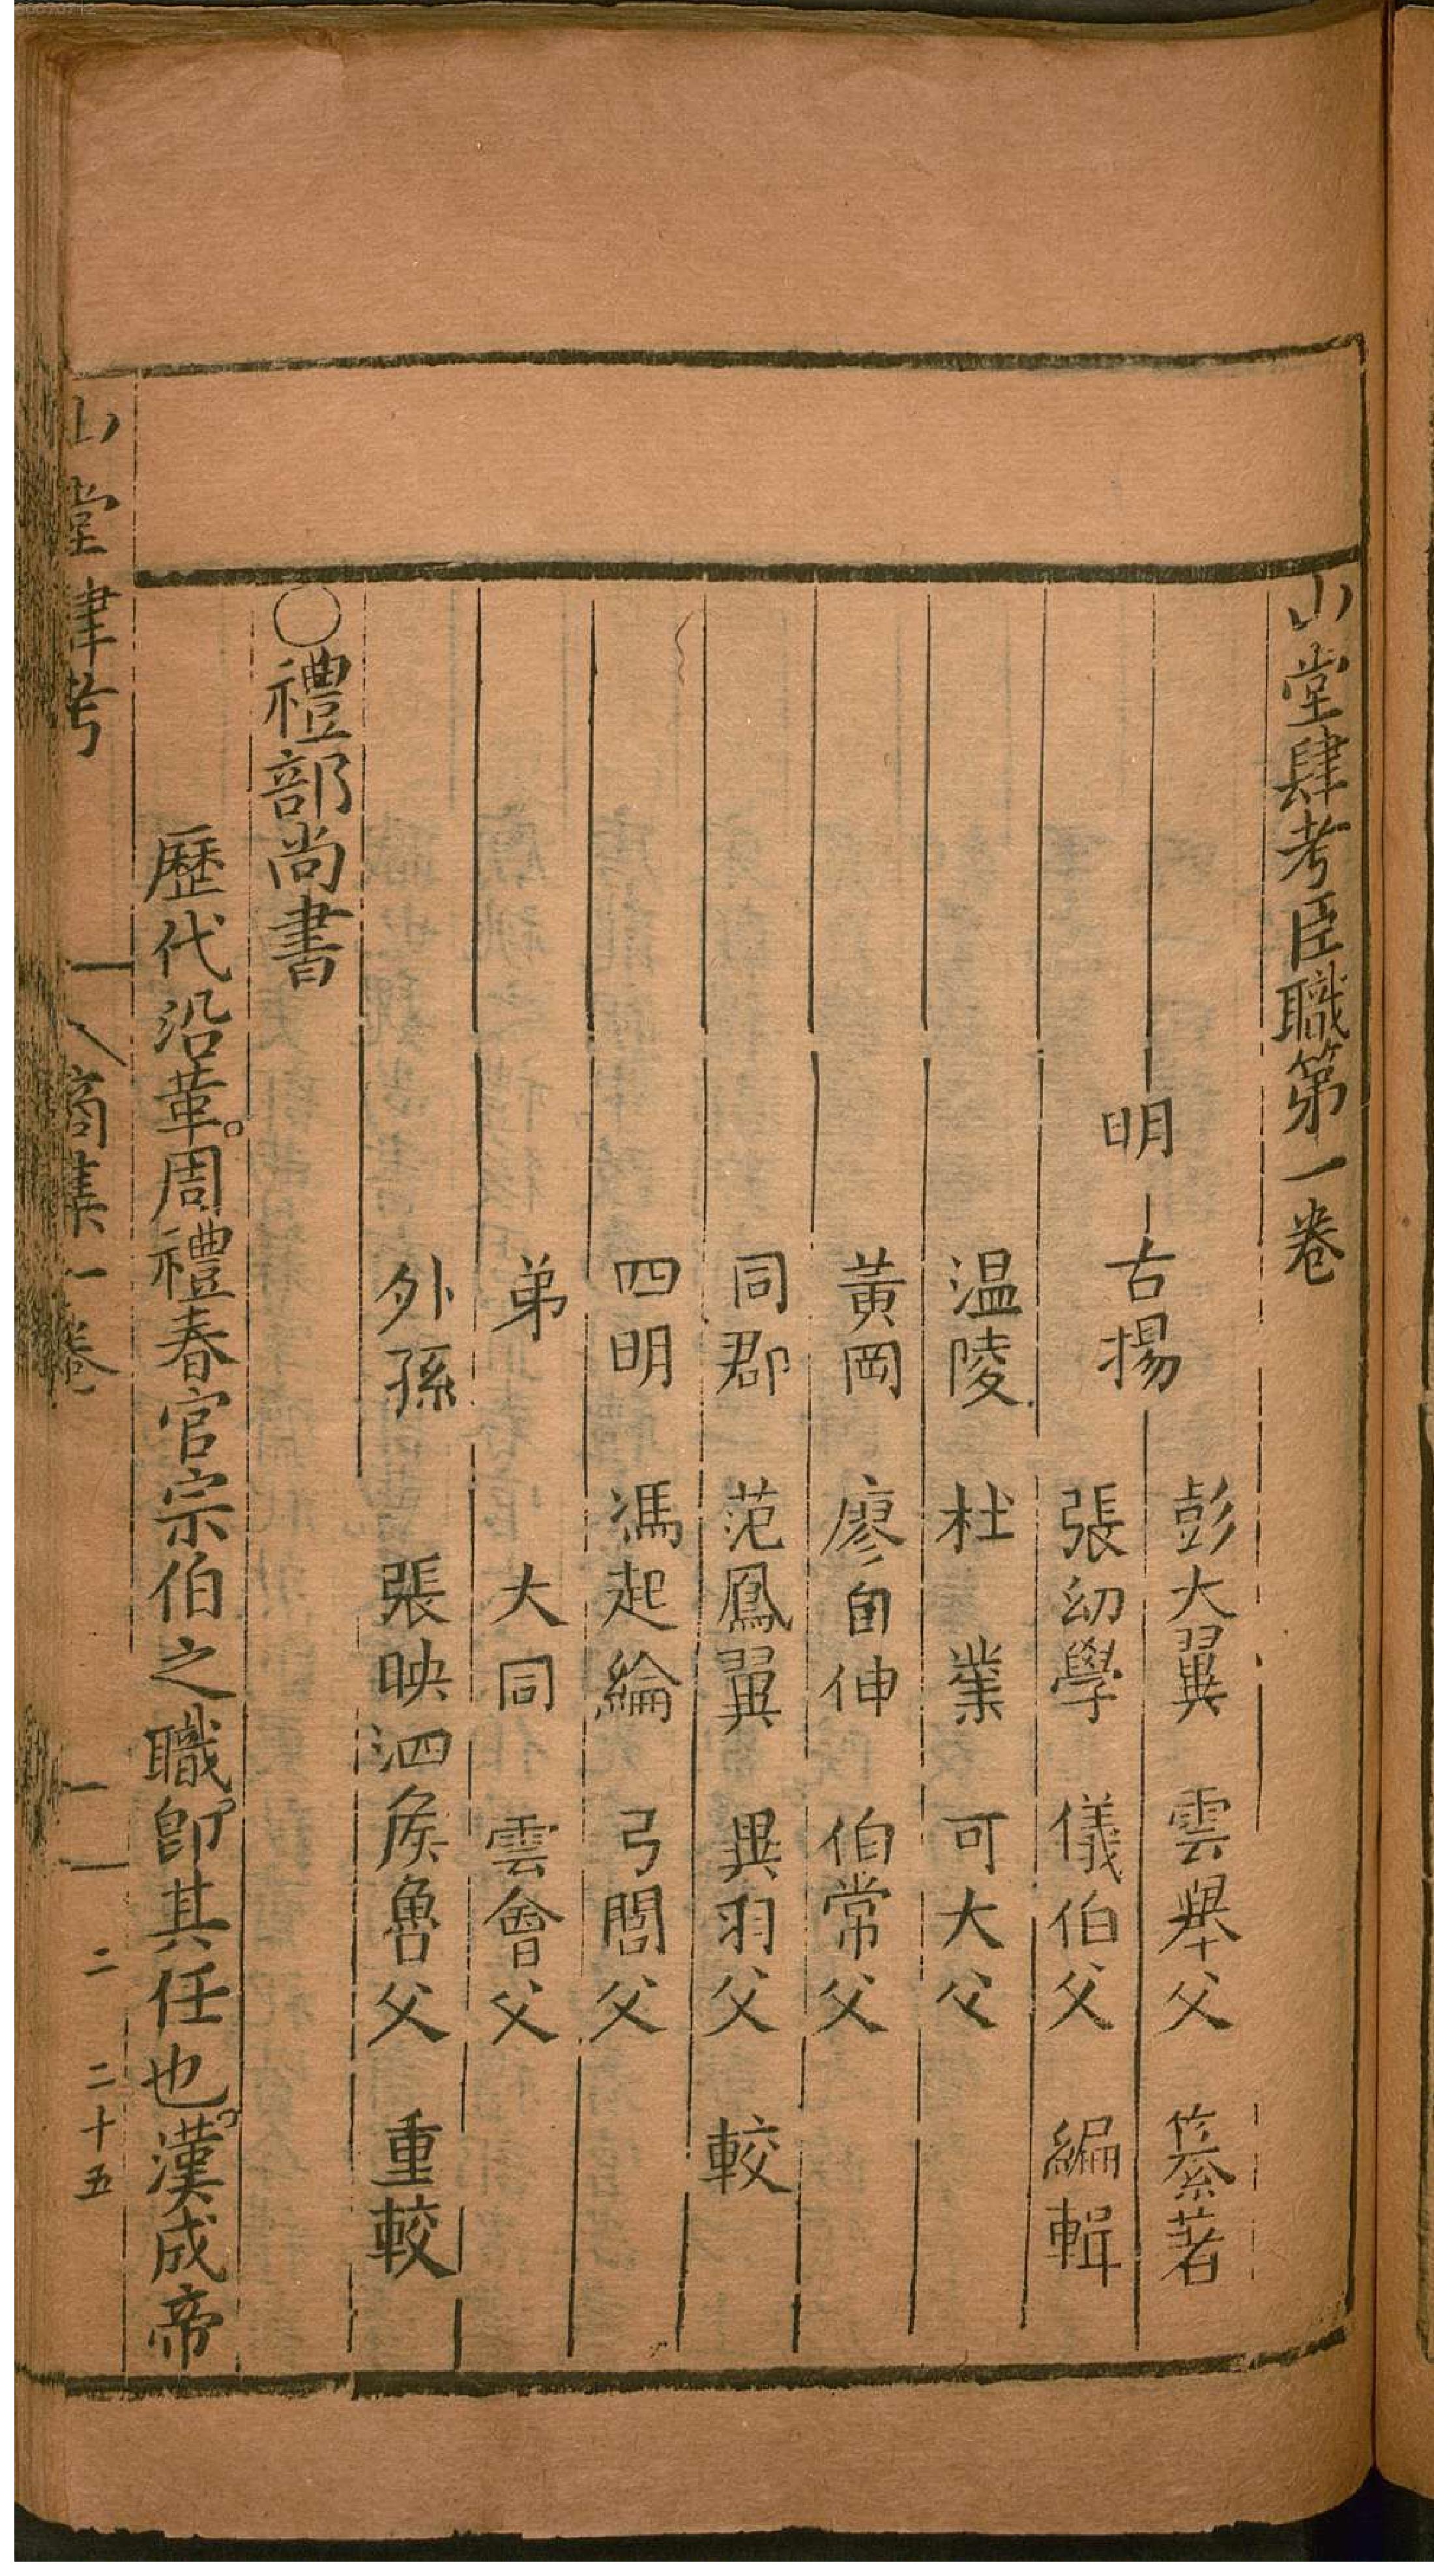 山堂肆考臣職第一卷
明 古揚
彭大翼 雲舉父 纂著
張幼學 儀伯父 編輯
温陵 杜業 可大父
黃岡 廖自伸 伯常父
同郡 范鳳翼 異羽父 較
四明 馮起綸 弓閭父
弟 大同 雲會父
外孫 張映泗矦魯父 重較
○禮部尚書
歷代沿革。周禮春官宗伯之職。卽其任也。漢成帝
山堂肆考 商集一卷 二 二十五